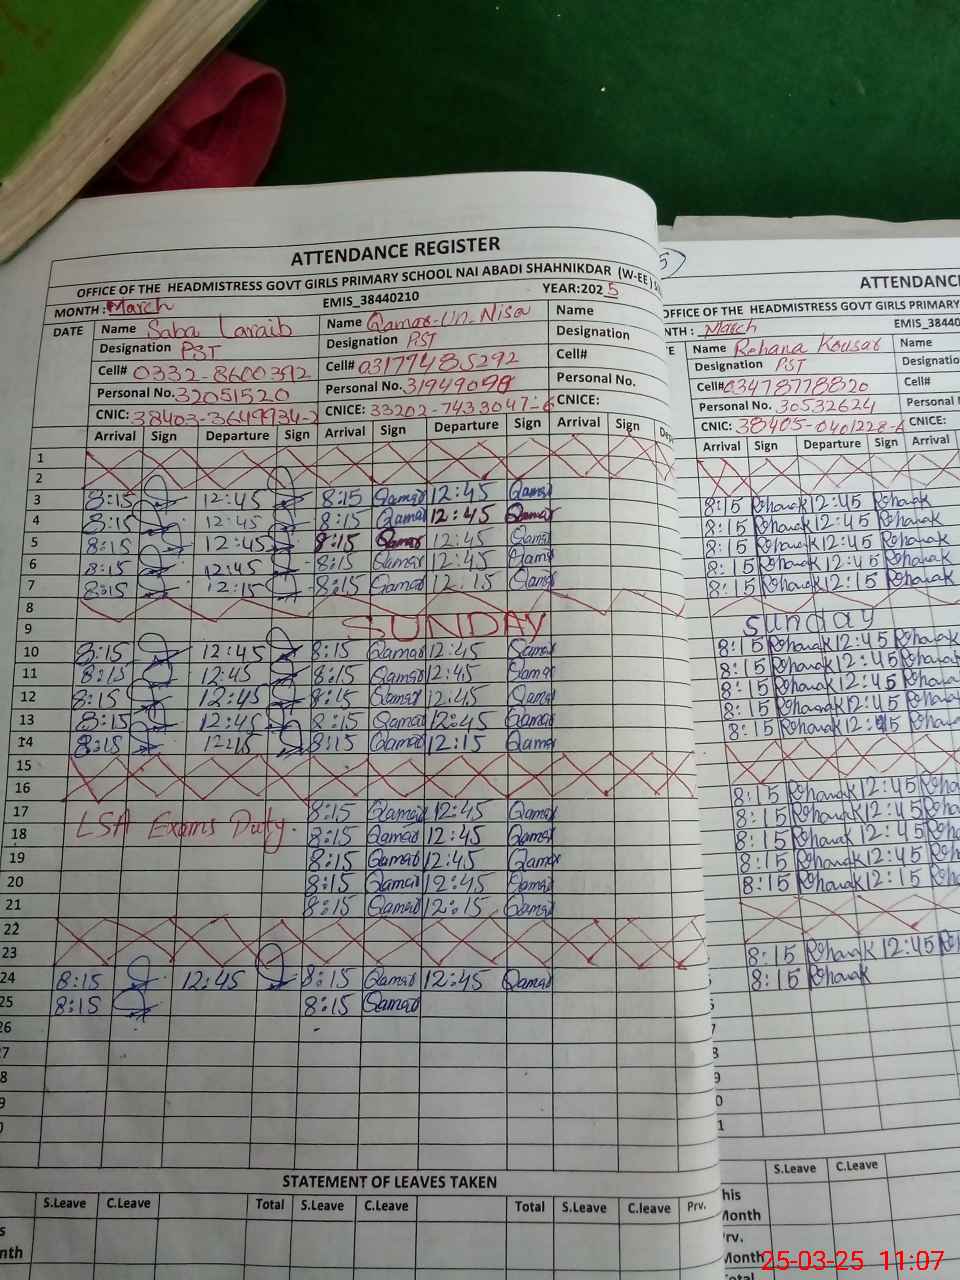 ATTENDANCE REGISTER
OFFICE OF THE HEADMISTRESS GOVT GIRLS PRIMARY SCHOOL NAI ABADI SHAHNIKDAR (W-EE)
MONTH: March EMIS_38440210 YEAR:2025
DATE Name Saba Laraib Name Qamar-Un-Nisa Name
Designation PST Designation PST Designation
Cell# 0332-8600392 Cell# 03177485292 Cell#
Personal No. 32051520 Personal No. 31949098 Personal No.
CNIC: 38403-3649934-2 CNICE: 33202-7433047-6 CNICE:
Arrival Sign Departure Sign Arrival Sign Departure Sign Arrival Sign
1
2
3 8:15 12:45 8:15 Qamar 12:45 Qamar
4 8:15 12:45 8:15 Qamar 12:45 Qamar
5 8:15 12:45 8:15 Qamar 12:45 Qamar
6 8:15 12:45 8:15 Qamar 12:45 Qamar
7 8:15 12:15 8:15 Qamar 12:15 Qamar
8
9 SUNDAY
10 8:15 12:45 8:15 Qamar 12:45 Qamar
11 8:15 12:45 8:15 Qamar 12:45 Qamar
12 8:15 12:45 8:15 Qamar 12:45 Qamar
13 8:15 12:45 8:15 Qamar 12:45 Qamar
14 8:15 12:15 8:15 Qamar 12:15 Qamar
15
16
17 8:15 Qamar 12:45 Qamar
18 LSA Exams Duty. 8:15 Qamar 12:45 Qamar
19 8:15 Qamar 12:45 Qamar
20 8:15 Qamar 12:45 Qamar
21 8:15 Qamar 12:15 Qamar
22
23
24 8:15 12:45 8:15 Qamar 12:45 Qamar
25 8:15 8:15 Qamar
26
7
8
9
STATEMENT OF LEAVES TAKEN
S.Leave C.Leave Total S.Leave C.Leave Total S.Leave C.leave Prv.
nth
5)
ATTENDANC
OFFICE OF THE HEADMISTRESS GOVT GIRLS PRIMARY
NTH: March EMIS_3844
Name Rehana Kousar Name
Designation PST Designatio
Cell# 03478778820 Cell#
Personal No. 30532624 Personal
CNIC: 38405-0401228-6 CNICE:
Arrival Sign Departure Sign Arrival
8:15 Rehanak 12:45 Rehanak
8:15 Rehanak 12:45 Rehanak
8:15 Rehanak 12:45 Rehanak
8:15 Rehanak 12:45 Rehanak
8:15 Rehanak 12:15 Rehanak
Sunday
8:15 Rehanak 12:45 Rehanak
8:15 Rehanak 12:45 Rehanak
8:15 Rehanak 12:45 Rehanak
8:15 Rehanak 12:45 Rehana
8:15 Rehanak 12:15 Rehana
8:15 Rehanak 12:45 Reha
8:15 Rehanak 12:45 Reha
8:15 Rehanak 12:45 Reh
8:15 Rehanak 12:45 Reh
8:15 Rehanak 12:15 Reh
8:15 Rehanak 12:45 Re
8:15 Rehanak
S.Leave C.Leave
his
Month
rv.
Month
otal
25-03-25 11:07